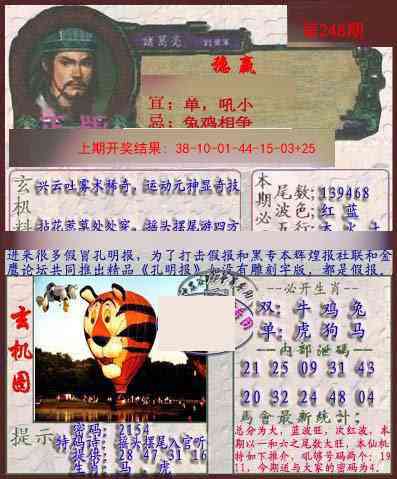 第248期
諸葛亮
稳赢
宜：单，吼小
忌：兔鸡相争
上期开奖结果：38-10-01-44-15-03+25
玄机料
兴云吐雾术稀奇，运动元神显奇技
本期必
尾数:139468
波色:红 蓝
进来很多假冒孔明报，为了打击假报和黑专本辉煌报社联和金
鹰论坛共同推出精品《孔明报》如没有雕刻字版，都是假报。
玄机图
必开生肖
双：牛 鸡 兔
单：虎 狗 马
内部泄码
21 25 09 31 43
20 32 24 48 04
馬會最新統計：
总分为大，蓝波旺，次红波，本
期以一和六之尾数大旺，本仙机
转如下推介，吼够号码两个：19
11，今期送与大家的密码为4．
提示
密码：2154
特码诗：摇头摆尾入官听
提供：28 47 31 16
生肖：马．虎